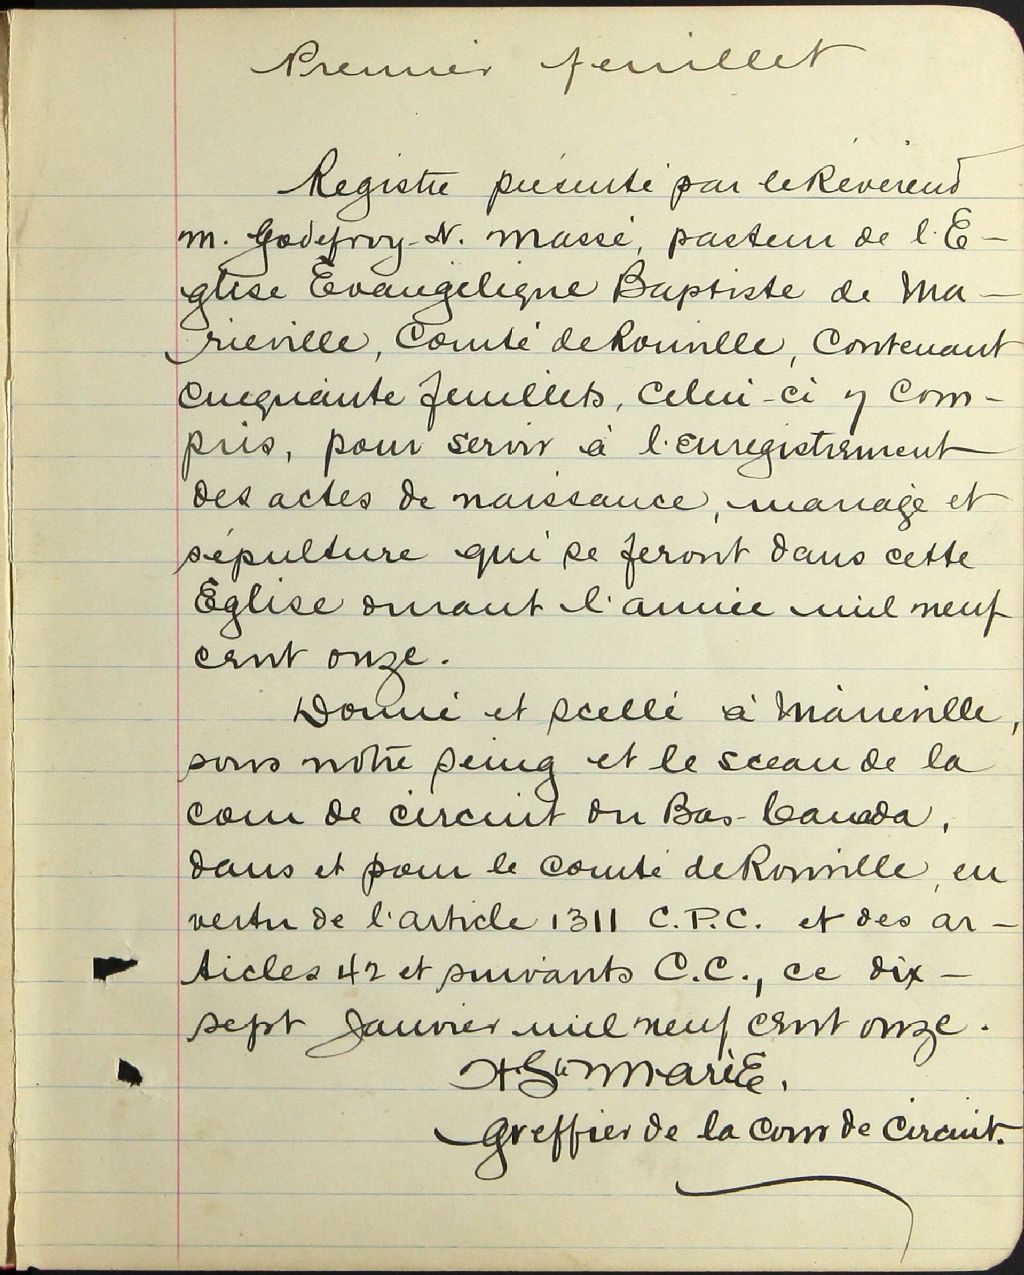 Premier feuillet
Registre présenté par le Révérend
M. Godefroy-N. Massé, pasteur de l'E-
glise Evangéligue Baptiste de Ma-
rieville, Comté de Rouville, Contenant
cinquante feuillets, celui-ci y com-
pris, pour servir à l'enregistrement
des actes de naissance, mariage et
sépulture qui se feront dans cette
Eglise durant l'année mil neuf
cent onze.
Donné et scellé à Marieville,
sous notre seing et le sceau de la
cour de circuit du Bas-Canada,
dans et pour le comté de Rouville, en
vertu de l'article 1311 C.P.C. et des ar-
ticles 42 et suivants C.C., ce dix-
sept Janvier mil neuf cent onze.
Ste Marie,
Greffier de la cour de Circuit.